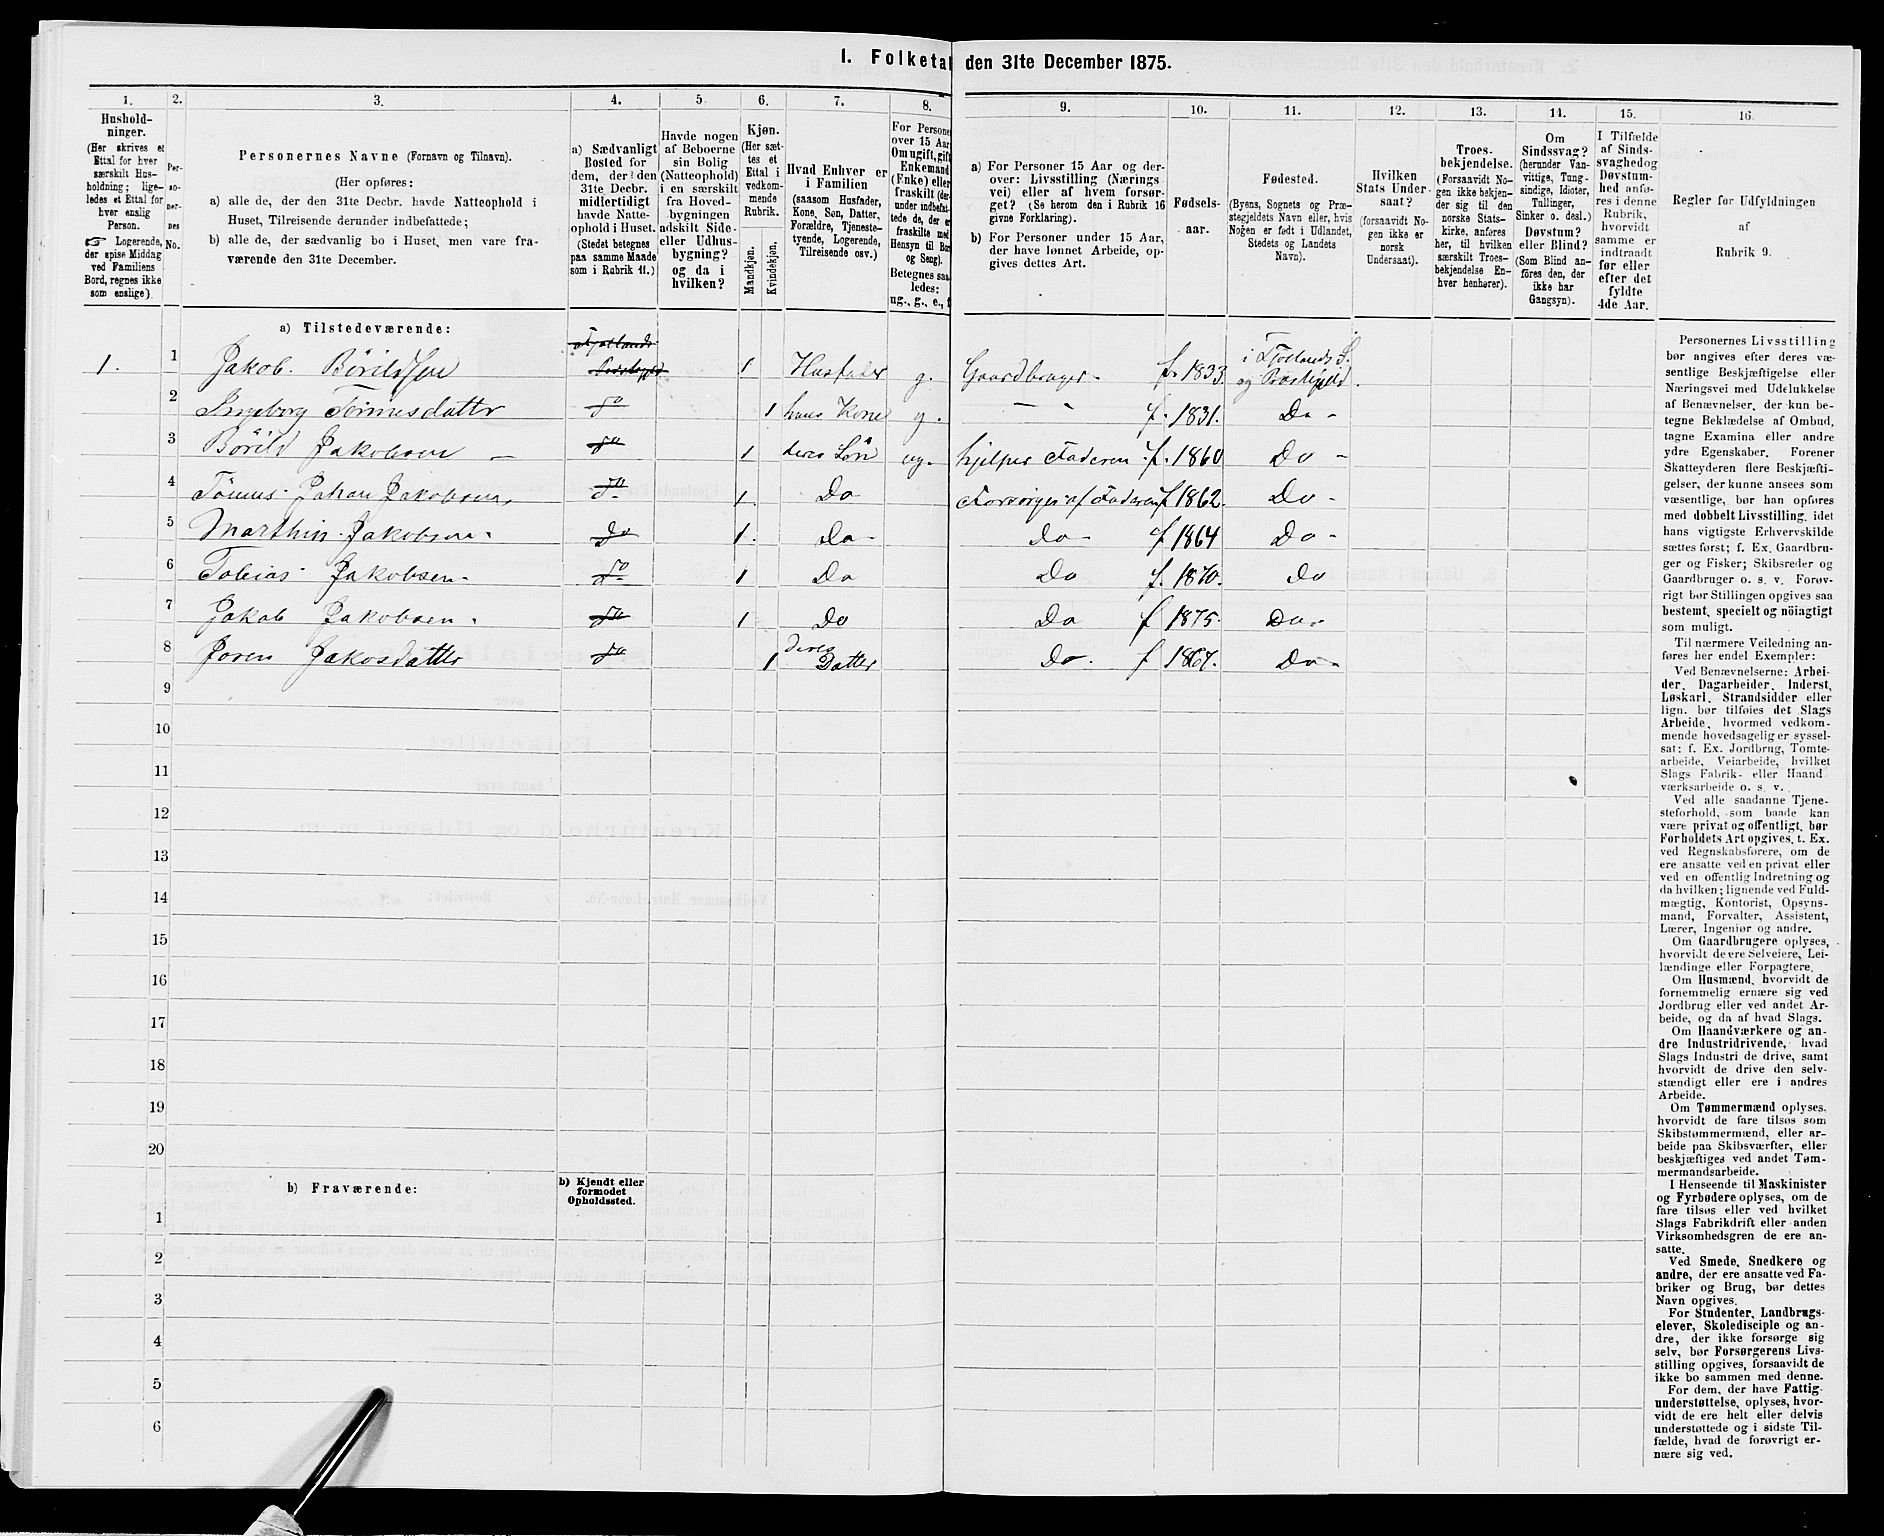 I. Folketal den 31te December 1875.
1. 2. 3. 4. 5. 6. 7. 8. 9. 10. 11. 12. 13. 14. 15. 16.
Hushold-
ninger.
(Her skrives et
Ettal for hver
særskilt Hus-
holdning; lige-
ledes et Ettal for
hver enslig
Person.
☞ Logerende,
der spise Middag
ved Familiens
Bord, regnes ikke
som enslige).
Per-
so-
ner-
nes
No.
Personernes Navne (Fornavn og Tilnavn).
(Her opføres:
a) alle de, der den 31te Decbr. havde Natteophold i
Huset, Tilreisende derunder indbefattede;
b) alle de, der sædvanlig bo i Huset, men vare fra-
værende den 31te December.
a) Sædvanligt
Bosted for
dem, der den
31te Decbr.
midlertidigt
havde Natte-
ophold i Huset.
(Stedet betegnes
paa samme Maade
som i Rubrik 11.)
Havde nogen
af Beboerne
sin Bolig
(Natteophold)
i en særskilt
fra Hoved-
bygningen
adskilt Side-
eller Udhus-
bygning?
og da i
hvilken?
Kjøn.
(Her sæt-
tes et
Ettal i
vedkom-
mende
Rubrik.
Mandkjøn.
Kvindekjøn.
Hvad Enhver er
i Familien
(saasom Husfader,
Kone, Søn, Datter,
Forældre, Tjeneste-
tyende, Logerende,
Tilreisende osv.)
For Persone
over 15 Aar
Om ugift, gift
Enkemand
(Enke) eller
fraskilt (der-
under indbefat-
tede de, der er
fraskilte med
Hensyn til Bor
og Seng).
Betegnes saa-
ledes:
ug., g., e., f
a) For Personer 15 Aar og der-
over: Livsstilling (Nærings
vei) eller af hvem forsør-
get? (Se herom den i Rubrik 16
givne Forklaring).
b) For Personer under 15 Aar,
der have lønnet Arbeide, op-
gives dettes Art.
Fødsels-
aar.
Fødested.
(Byens, Sognets og Præ-
stegjeldets Navn eller, hvis
Nogen er født i Udlandet,
Stedets og Landets
Navn).
Hvilken
Stats Under-
saat?
(forsaavidt No-
gen ikke er
norsk
Undersaat).
Troes-
bekjendelse.
(Forsaavidt No-
gen ikke bekjen-
der sig til den
norske Stats-
kirke, anføres
her, til hvilken
særskilt Troes-
bekjendelse En-
hver henhører).
Om
Sindssvag?
(herunder Van-
vittige, Tung-
sindige, Idioter,
Tullinger,
Sinker o. desl.)
Døvstum?
eller Blind?
(Som Blind an-
føres den, der
ikke har
Gangsyn).
I Tilfælde
af Sinds-
svaghedog
Døvstum-
hed anfø-
res i denne
Rubrik,
hvorvidt
samme er
indtraadt
før eller
efter det
fyldte
4de Aar.
Regler for Udfyldningen
af
Rubrik 9.
a) Tilstedeværende:
1. 1 Jakob. Börildsen 1 Husfader g. Gaardbruger f. 1833. i Fjotlands S. og Præstegjeld.
2 Ingeborg Tönnesdatter do 1 hans Kone g. f. 1831. Do
3 Böríld Jakobsen do 1 deres Sön ug. hjelper Faderen f. 1860 Do
4 Tönnes Johan Jakobsen do 1. Do Forsörges af Faderen f 1862. Do
5 Marthin Jakobsen do 1. Do Do f 1864 Do
6 Tobias Jakobsen do 1 Do Do f. 1870. Do
7 Jakob Jakobsen do 1 Do Do f 1875. Do
8 Joren Jakobsdatter do 1 deres Datter Do. f 1867. Do
9
10
11
12
13
14
15
16
17
18
19
20
b) Fraværende:
b) Kjendt eller
formodet
Opholdssted.
1
2
3
4
5
6
Personernes Livsstilling
bør angives efter deres væ-
sentlige Beskjæftigelse eller
Næringsvei med Udelukkelse
af Benævnelser, der kun be-
tegne Beklædelse af Ombud,
tagne Examina eller andre
ydre Egenskaber. Forener
Skatteyderen flere Beskjæfti-
gelser, der kunne ansees som
væsentlige, bør han opføres
med dobbelt Livsstilling, idet
hans vigtigste Erhvervskilde
sættes først; f. Ex. Gaardbru-
ger og Fisker; Skibsreder og
Gaardbruger o. s. v. Forøv-
rigt bør Stillingen opgives saa
bestemt, specielt og nöiagtigt
som muligt.
Til nærmere Veiledning an-
føres her endel Exempler:
Ved Benævnelserne: Arbei-
der, Dagarbeider, Inderst,
Løskarl, Strandsidder eller
lign. bør tilføies det Slags
Arbeide, hvormed vedkom-
mende hovedsagelig er syssel-
sat; f. Ex. Jordbrug, Tomte-
arbeide, Veiarbeide, hvilket
Slags Fabrik- eller Haand
værksarbeide o. s. v.
Ved alle saadanne Tjene-
steforhold, som baade kan
være privat og offentligt, bør
Forholdets Art opgives, t. Ex.
ved Regnskabsførere, om de
ere ansatte ved en privat eller
ved en offentlig Indretning og
da hvilken; lignende ved Fuld-
mægtig, Kontorist, Opsyns-
mand, Forvalter, Assistent,
Lærer, Ingeniør og andre.
Om Gaardbrugere oplyses,
hvorvidt de ere Selveiere, Lei-
lændinge eller Forpagtere.
Om Husmænd, hvorvidt de
fornemmelig ernære sig ved
Jordbrug eller ved andet Ar-
beide, og da af hvad Slags.
Om Haandværkere og an-
dre Industridrivende, hvad
Slags Industri de drive, samt
hvorvidt de drive den selv-
stændigt eller ere i andres
Arbeide.
Om Tømmermænd oplyses,
hvorvidt de fare tilsøs som
Skibstømmermænd, eller ar-
beide paa Skibsværfter, eller
beskjæftiges ved andet Tøm-
mermandsarbeide.
I Henseende til Maskinister
og Fyrbødere oplyses, om de
fare tilsøs eller ved hvilket
Slags Fabrikdrift eller anden
Virksomhedsgren de ere an-
satte.
Ved Smede, Snedkere og
andre, der ere ansatte ved Fa-
briker og Brug, bør dettes
Navn opgives.
For Studenter, Landbrugs-
elever, Skoledisciple og an-
dre, der ikke forsørge sig
selv, bør Forsørgerens Livs-
stilling opgives, forsaavidt de
ikke bo sammen med denne.
For dem, der have Fattig-
understøttelse, oplyses, hvor-
vidt de ere helt eller delvis
understøttede og i sidste Til-
fælde, hvad de forøvrigt er-
nære sig ved.